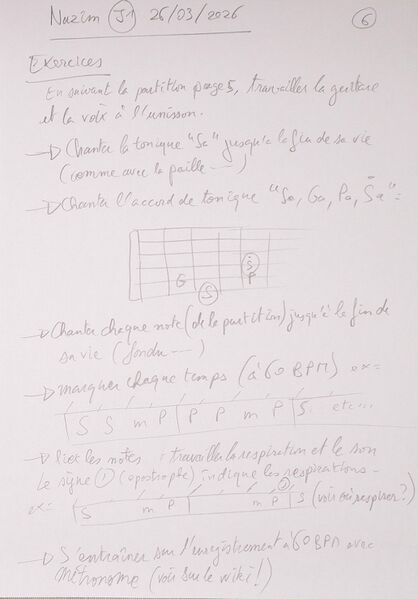 Nazim J1 26/03/2026 6
Exercices
En suivant la partition page 5, travailler la guitare
et la voix à l'unisson.
→ Chanter la tonique "Sa" jusqu'à la fin de sa vie
(comme avec la paille ---)
→ Chanter l'accord de tonique "Sa, Ga, Pa, Ṡa" =
Ṡ
G P
S
→ Chanter chaque note (de la partition) jusqu'à la fin de
sa vie (fondu ---)
→ marquer chaque temps (à 60 BPM) ex =
S S m P P P m P S. etc...
→ lier les notes : travailler la respiration et le son
le signe ' (apostrophe) indique les respirations -
ex = S m P m P ' S (voir où respirer ?)
→ S'entraîner sur l'enregistrement à 60 BPM avec
métronome (voir sur le wiki !)